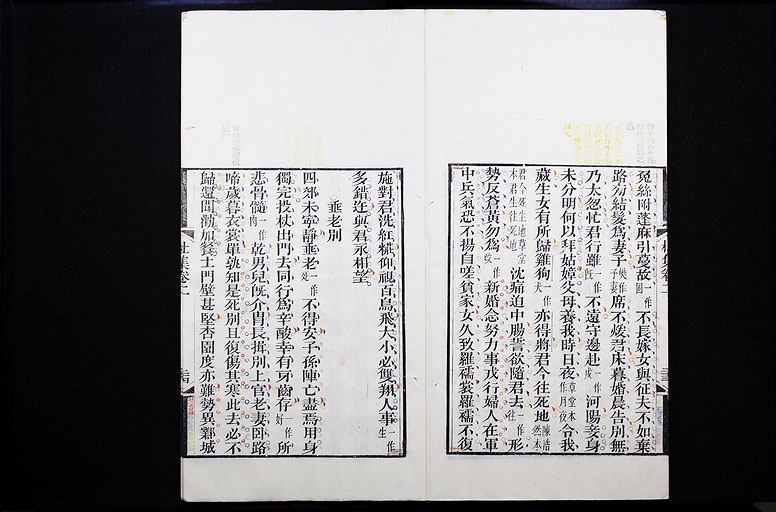 兔絲附蓬麻引蔓故一作固不長嫁女與征夫不如棄
路旁結髮爲妻子樊作子妻席不煖君床暮婚晨告別無
乃太怱忙君行雖一作既不遠守邊赴一作戍河陽妾身
未分明何以拜姑嫜父母養我時日夜草堂本作月夜令我
藏生女有所歸雞狗一作犬亦得將君今往死地陳浩然本
君今死生地草堂本君生往死地沈痛迫中腸誓欲隨君去一作往形
勢反蒼黃勿爲一作新婚念努力事戎行婦人在軍
中兵氣恐不揚自嗟貧家女久致羅襦裳羅襦不復
施對君洗紅粧仰視百鳥飛大小必雙翔人事一作生
多錯迕與君永相望
垂老別
四郊未寧靜垂老一作不得安子孫陣亡盡焉用身
獨完投杖出門去同行爲辛酸幸有牙齒存一作好所
悲骨髓一作肉乾男兒既介胄長揖別上官老妻臥路
啼歲暮衣裳單孰知是死別且復傷其寒此去必不
歸還聞勸加餐土門壁甚堅杏園度亦難勢異鄴城
杜集卷二